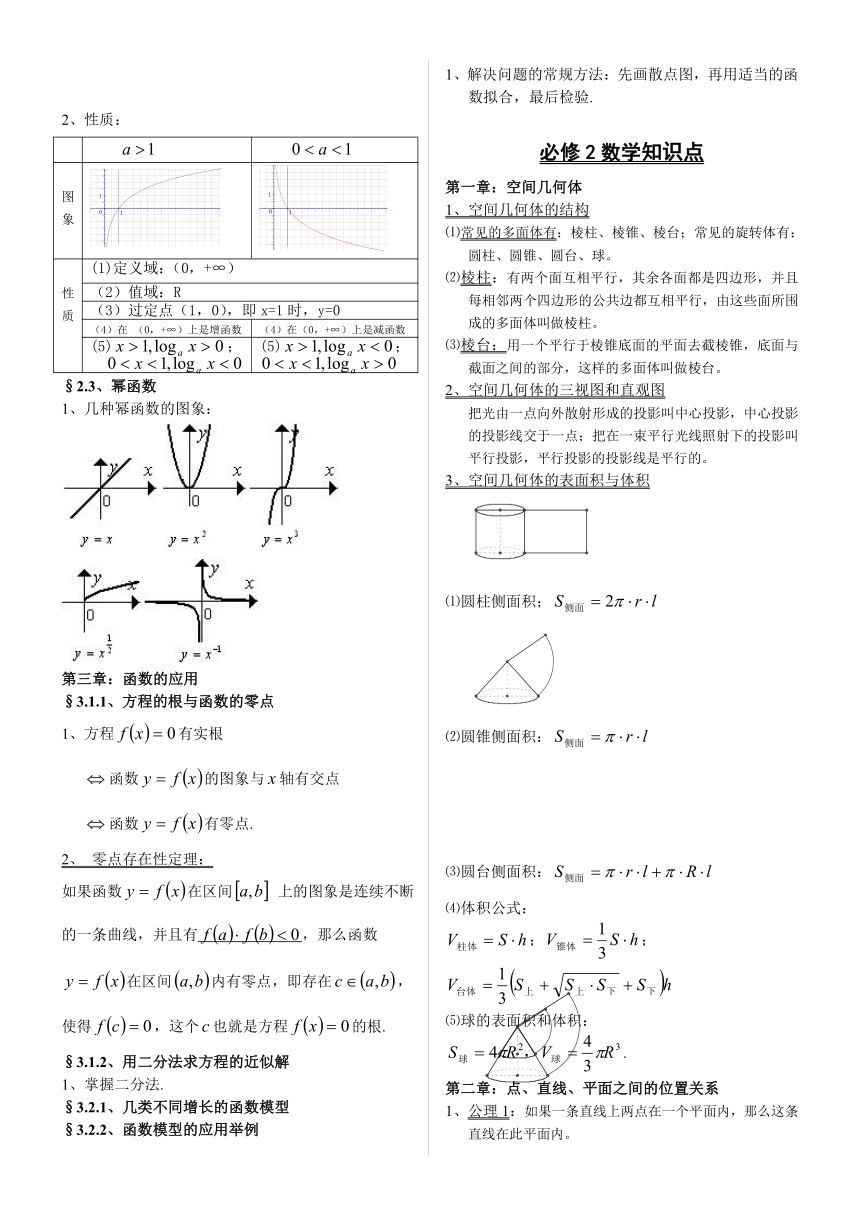 2、性质:
a > 1
0 < a < 1
图象
1
0
1
1
0
1
性质
(1)定义域:(0,+∞)
(2)值域:R
(3)过定点(1,0),即 x=1 时,y=0
(4)在 (0,+∞)上是增函数
(4)在(0,+∞)上是减函数
(5) x > 1, logₐ x > 0;
0 < x < 1, logₐ x < 0
(5) x > 1, logₐ x < 0;
0 < x < 1, logₐ x > 0
§2.3、幂函数
1、几种幂函数的图象:
y x 0
y x 0
y x 0
y = x
y = x²
y = x³
y x 0
y x 0
y = x^{1/2}
y = x⁻¹
第三章:函数的应用
§3.1.1、方程的根与函数的零点
1、方程 f(x) = 0 有实根
⇔ 函数 y = f(x) 的图象与 x 轴有交点
⇔ 函数 y = f(x) 有零点.
2、 零点存在性定理:
如果函数 y = f(x) 在区间 [a,b] 上的图象是连续不断
的一条曲线,并且有 f(a)·f(b) < 0,那么函数
y = f(x) 在区间 (a,b) 内有零点,即存在 c ∈ (a,b),
使得 f(c) = 0,这个 c 也就是方程 f(x) = 0 的根.
§3.1.2、用二分法求方程的近似解
1、掌握二分法.
§3.2.1、几类不同增长的函数模型
§3.2.2、函数模型的应用举例
1、解决问题的常规方法:先画散点图,再用适当的函
数拟合,最后检验.
必修 2 数学知识点
第一章:空间几何体
1、空间几何体的结构
⑴常见的多面体有:棱柱、棱锥、棱台;常见的旋转体有:
圆柱、圆锥、圆台、球。
⑵棱柱:有两个面互相平行,其余各面都是四边形,并且
每相邻两个四边形的公共边都互相平行,由这些面所围
成的多面体叫做棱柱。
⑶棱台:用一个平行于棱锥底面的平面去截棱锥,底面与
截面之间的部分,这样的多面体叫做棱台。
2、空间几何体的三视图和直观图
把光由一点向外散射形成的投影叫中心投影,中心投影
的投影线交于一点;把在一束平行光线照射下的投影叫
平行投影,平行投影的投影线是平行的。
3、空间几何体的表面积与体积
⑴圆柱侧面积; S侧面 = 2π·r·l
⑵圆锥侧面积: S侧面 = π·r·l
⑶圆台侧面积: S侧面 = π·r·l + π·R·l
⑷体积公式:
V柱体 = S·h; V锥体 = 1/3 S·h;
V台体 = 1/3 (S上 + √(S上·S下) + S下)h
⑸球的表面积和体积:
S球 = 4πR², V球 = 4/3 πR³.
第二章:点、直线、平面之间的位置关系
1、公理 1:如果一条直线上两点在一个平面内,那么这条
直线在此平面内。